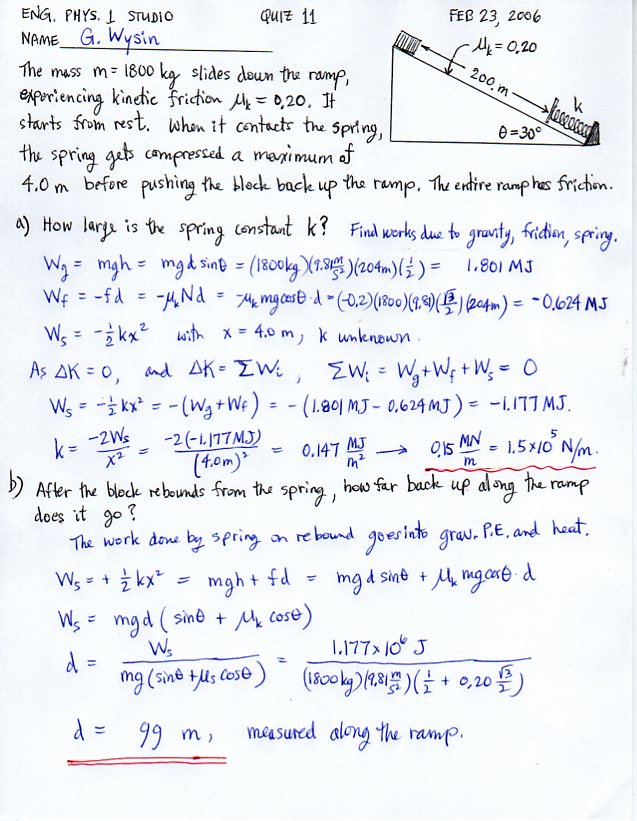 ENG. PHYS. 1 STUDIO QUIZ 11 FEB 23, 2006
NAME G. Wysin
μk = 0.20
200. m
k
θ = 30°
The mass m = 1800 kg slides down the ramp,
experiencing kinetic friction μk = 0.20. It
starts from rest. When it contacts the spring,
the spring gets compressed a maximum of
4.0 m before pushing the block back up the ramp. The entire ramp has friction.
a) How large is the spring constant k? Find works due to gravity, friction, spring.
Wg = mgh = mgd sinθ = (1800kg)(9.81 m/s²)(204m)(1/2) = 1.801 MJ
Wf = -fd = -μkNd = -μk mg cosθ·d = (-0.2)(1800)(9.81)(√3/2)(204m) = -0.624 MJ
Ws = -½kx² with x = 4.0 m, k unknown.
As ΔK = 0, and ΔK = ΣWi, ΣWi = Wg + Wf + Ws = 0
Ws = -½kx² = -(Wg + Wf) = -(1.801 MJ - 0.624 MJ) = -1.177 MJ.
k = -2Ws/x² = -2(-1.177MJ)/(4.0m)² = 0.147 MJ/m² → 0.15 MN/m = 1.5×10⁵ N/m.
b) After the block rebounds from the spring, how far back up along the ramp
does it go?
The work done by spring on rebound goes into grav. P.E. and heat.
Ws = +½kx² = mgh + fd = mgd sinθ + μk mg cosθ·d
Ws = mgd (sinθ + μk cosθ)
d = Ws/mg(sinθ + μs cosθ) = 1.177×10⁶ J/(1800kg)(9.81 m/s²)(1/2 + 0.20 √3/2)
d = 99 m, measured along the ramp.